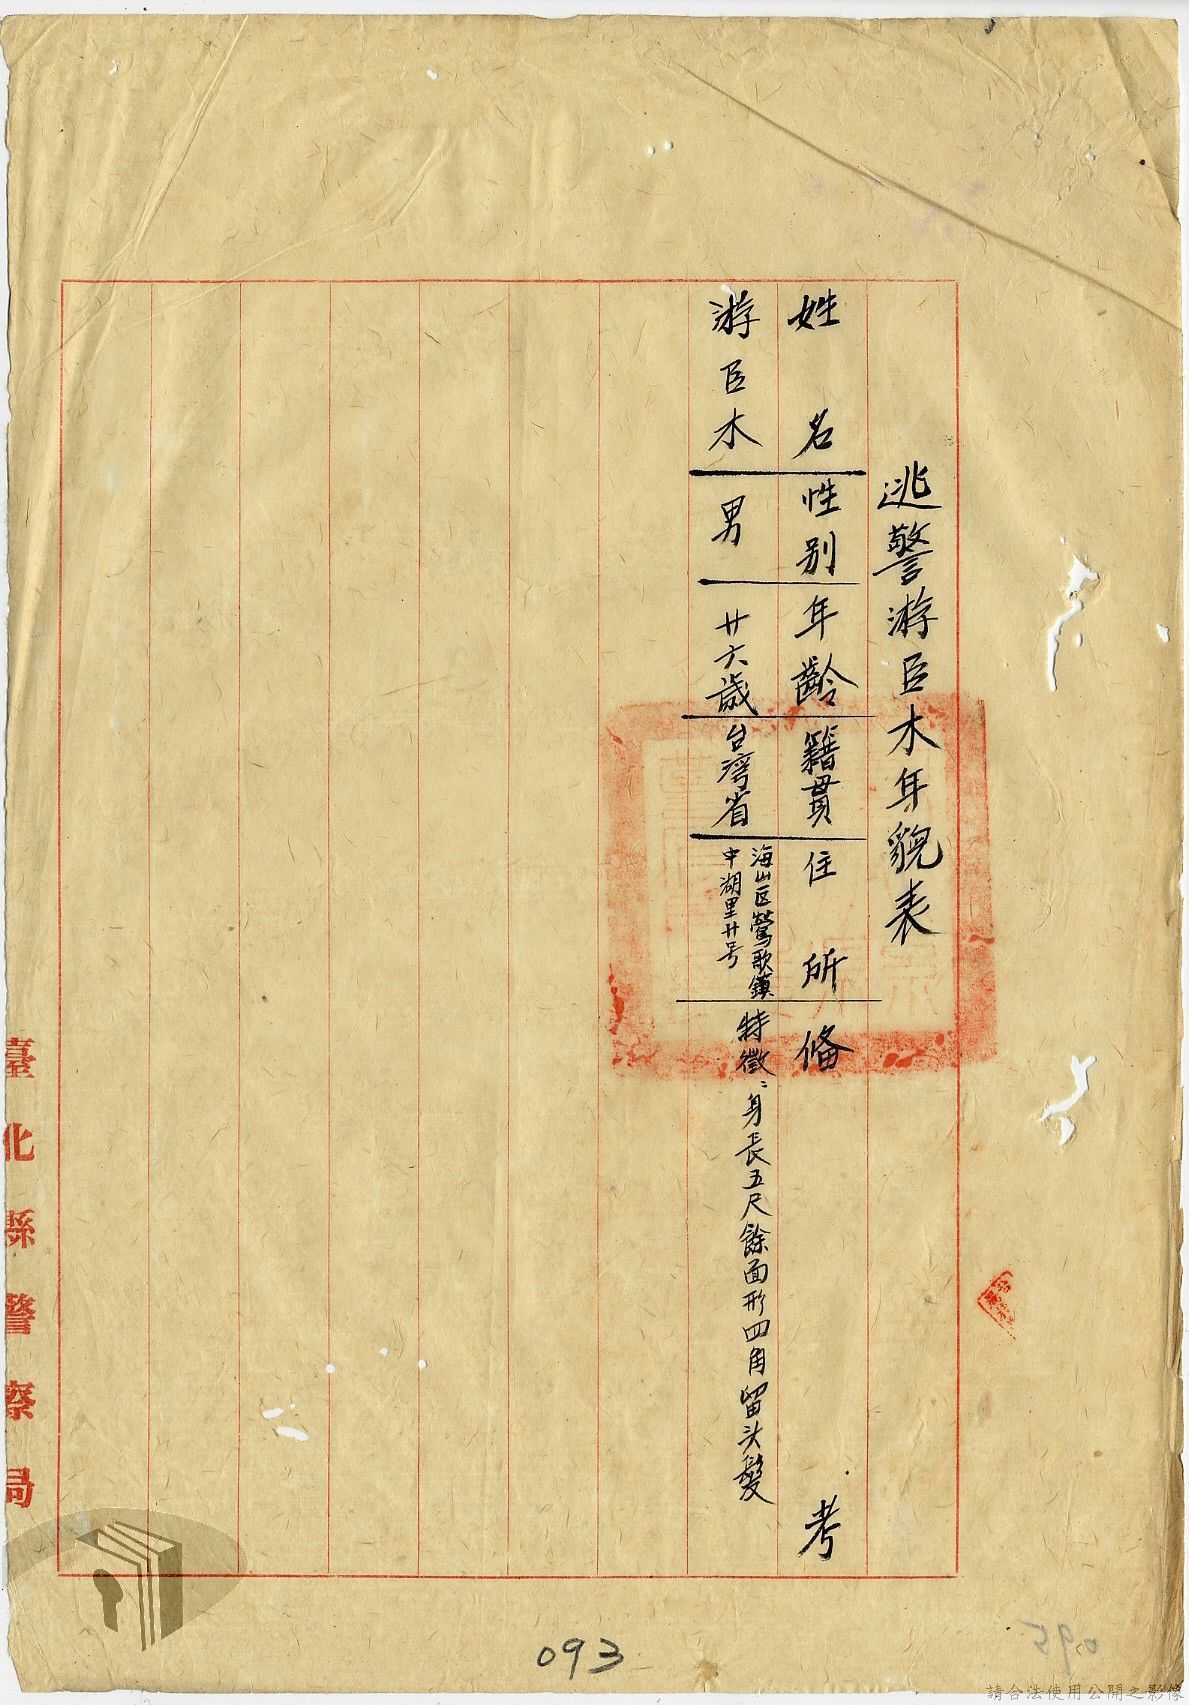 逃警游臣木年貌表
姓名
性別
年齡
籍貫
住所
俻考
游臣木
男
廿六歲
台湾省
海山区鶯歌鎮
中湖里廿号
特徵：身長五尺餘面形四角留头髮
臺北縣警察局
093
095
請合法使用公開之影像